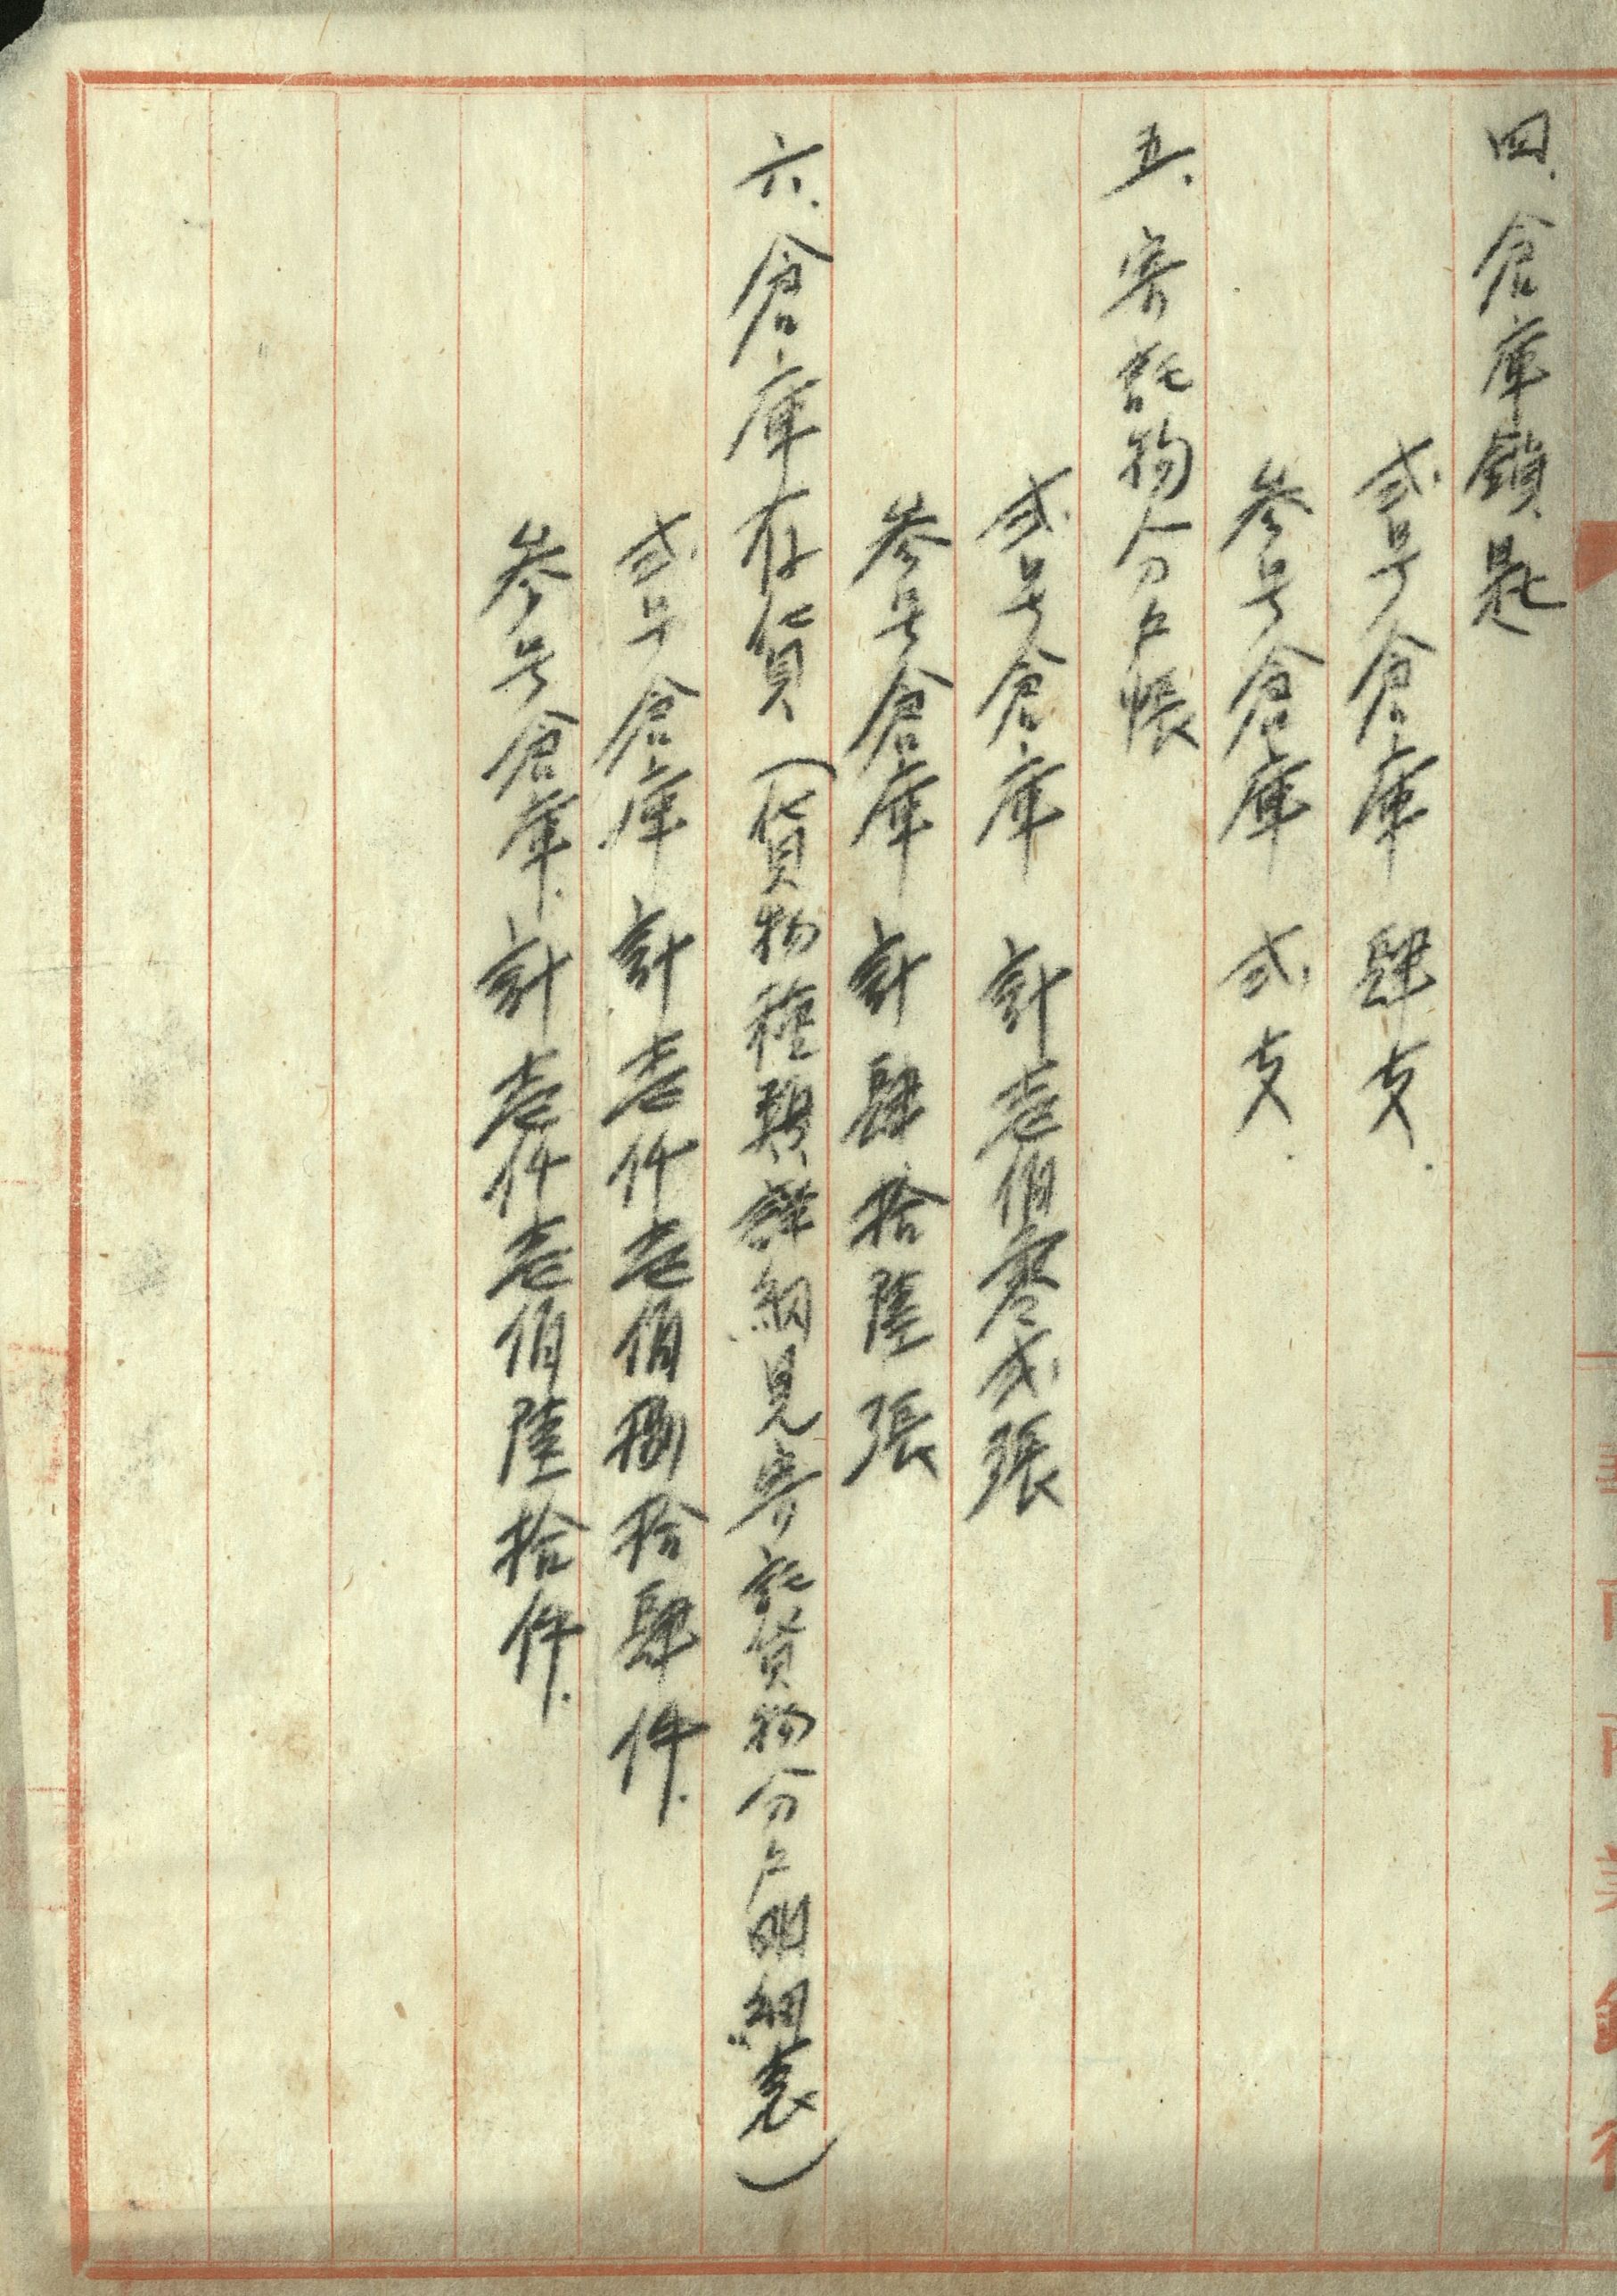 四、倉庫鎖匙
弍号倉庫 肆支.
叁号倉庫 弍支.
五、寄託物分户帳
弍号倉庫 計壱佰零弍張
叁号倉庫 計肆拾陸張
六、倉庫存貨(貨物種類詳細見寄託貨物分户明細表)
弍号倉庫 計壱仟壱佰捌拾肆件.
叁号倉庫.計壱仟壱佰陸拾件.